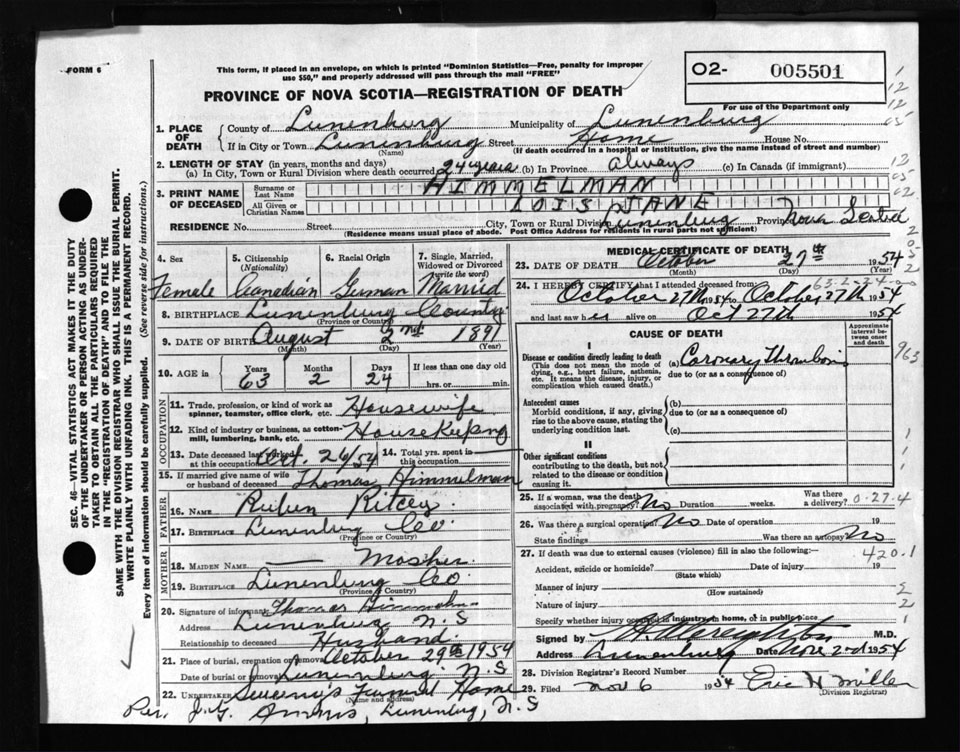 FORM 6
This form, if placed in an envelope, on which is printed "Dominion Statistics—Free, penalty for improper
use $50," and properly addressed will pass through the mail "FREE"
PROVINCE OF NOVA SCOTIA—REGISTRATION OF DEATH
O2- 005501
For use of the Department only
1. PLACE OF DEATH
County of Lunenburg Municipality of Lunenburg
If in City or Town Lunenburg Street Home House No.
(Name) (If death occurred in a hospital or institution, give the name instead of street and number)
2. LENGTH OF STAY (in years, months and days)
(a) In City, Town or Rural Division where death occurred 24 years (b) In Province always (c) In Canada (if immigrant)
3. PRINT NAME OF DECEASED
Surname or Last Name HIMMELMAN
All Given or Christian Names LOIS JANE
RESIDENCE No. Street City, Town or Rural Division Lunenburg Province Nova Scotia
(Residence means usual place of abode. Post Office Address for residents in rural parts not sufficient)
SEC. 46—VITAL STATISTICS ACT MAKES IT THE DUTY
OF THE UNDERTAKER OR PERSON ACTING AS UNDER-
TAKER TO OBTAIN ALL THE PARTICULARS REQUIRED
IN THE "REGISTRATION OF DEATH" AND TO FILE THE
SAME WITH THE DIVISION REGISTRAR WHO SHALL ISSUE THE BURIAL PERMIT.
WRITE PLAINLY WITH UNFADING INK. THIS IS A PERMANENT RECORD.
Every item of information should be carefully supplied. (See reverse side for instructions.)
4. Sex Female
5. Citizenship (Nationality) Canadian
6. Racial Origin German
7. Single, Married, Widowed or Divorced (write the word) Married
8. BIRTHPLACE Lunenburg County
(Province or Country)
9. DATE OF BIRTH August 2nd 1891
(Month) (Day) (Year)
10. AGE in Years 63 Months 2 Days 24 If less than one day old
hrs. or min.
OCCUPATION
11. Trade, profession, or kind of work as
spinner, teamster, office clerk, etc. Housewife
12. Kind of industry or business, as cotton-
mill, lumbering, bank, etc. House Keeping
13. Date deceased last worked at this occupation Oct. 26/54
14. Total yrs. spent in this occupation
15. If married give name of wife
or husband of deceased Thomas Himmelman
FATHER
16. Name Ruben Ritcey
17. Birthplace Lunenburg Co.
(Province or Country)
MOTHER
18. MAIDEN NAME — Mosher
19. BIRTHPLACE Lunenburg Co
(Province or Country)
20. Signature of informant Thomas Himmelman
Address Lunenburg N.S
Relationship to deceased Husband
21. Place of burial, cremation or removal October 29th 1954
Date of burial or removal Lunenburg N.S
22. Undertaker Funeral Home
(Name and address)
Per. J.G. Lunenburg, N.S
MEDICAL CERTIFICATE OF DEATH
23. DATE OF DEATH October 27th 1954
(Month) (Day) (Year)
63-2-24
24. I HEREBY CERTIFY that I attended deceased from:
October 27th 1954 to October 27th 1954
and last saw her alive on Oct 27th 1954
CAUSE OF DEATH
Approximate interval between onset and death
I
Disease or condition directly leading to death
(This does not mean the mode of
dying, e.g., heart failure, asthenia,
etc. It means the disease, injury, or
complication which caused death.)
(a) Coronary Thrombosis
due to (or as a consequence of)
Antecedent causes
Morbid conditions, if any, giving
rise to the above cause, stating the
underlying condition last.
(b)
due to (or as a consequence of)
(c)
II
Other significant conditions
contributing to the death, but not
related to the disease or condition
causing it.
25. If a woman, was the death
associated with pregnancy? No Duration weeks. Was there a delivery? 0-27-4
26. Was there a surgical operation? No Date of operation 19
State findings Was there an autopsy No
27. If death was due to external causes (violence) fill in also the following:— 420.1
Accident, suicide or homicide? Date of injury 19
(State which)
Manner of injury
(How sustained)
Nature of injury
Specify whether injury occurred in industry, in home, or in public place
Signed by M.D.
Address Lunenburg Date Nov 2nd 1954
28. Division Registrar's Record Number
29. Filed Nov 6 1954 Eric H Miller
(Division Registrar)